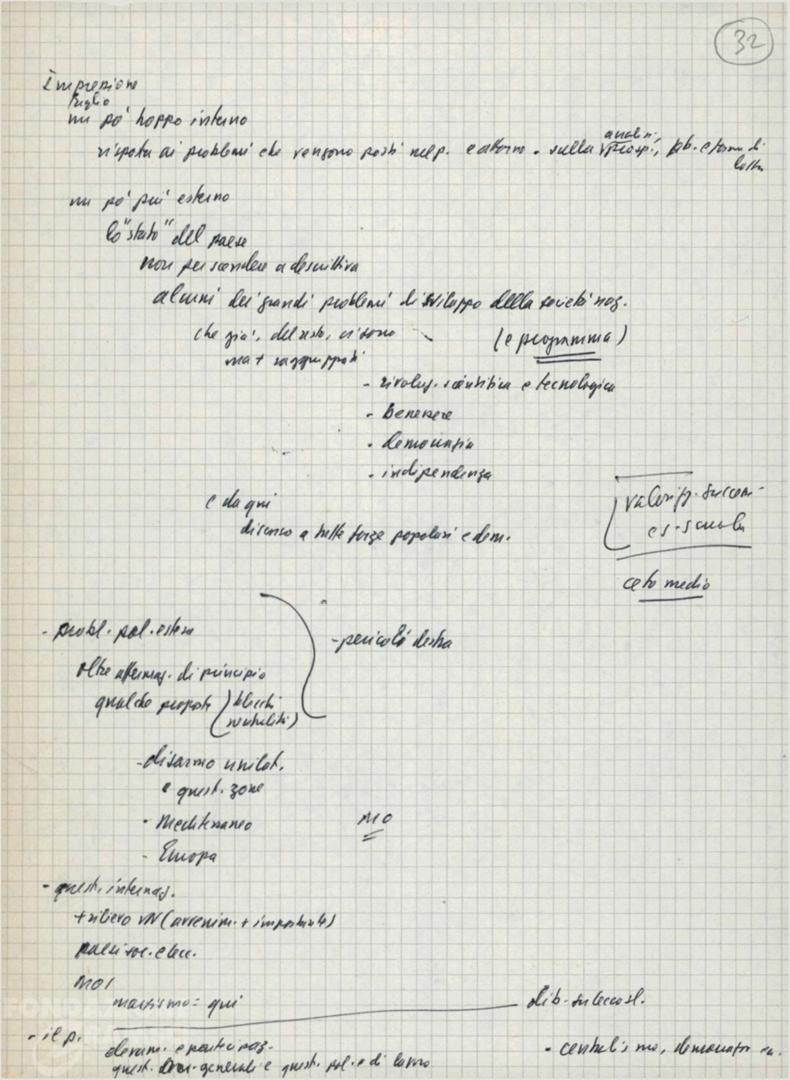 32
Impressione
Luglio
un pò troppo interno
risposta ai problemi che vengono posti nel p. e attorno . sulla prosp., pb. e forme di
analisi,
lotta
un pò più esterno
lo "stato" del paese
non per scendere a descrittiva
alcuni dei grandi problemi di sviluppo della società naz.
che già, del resto, ci sono
ma + raggruppati
(e programma)
- rivoluz. scientifica e tecnologica
- Benessere
- democrazia
- indipendenza
e da qui
discorso a tutte forze popolari e dem.
es. scuola
ceto medio
- probl. pol. estera
- pericolo destra
oltre affermaz. di principio
qualche proposta (blocchi
neutralità)
- disarmo unilat.
e quest. zone
- Mediterraneo
MO
- Europa
- quest. internaz.
+ rilievo VN (avvenim. + importante)
paesi soc. e
noi
marxismo: qui
dib. su
- il p.
e partecipaz.
quest. generali e quest. pol. e di lavoro
- centralismo, democratico